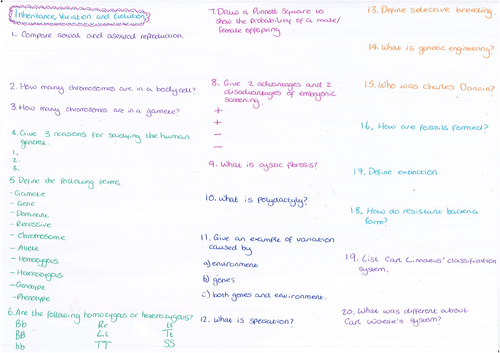 Inheritance, Variation and Evolution
1. Compare sexual and asexual reproduction.
2. How many chromosomes are in a body cell?
3. How many chromosomes are in a gamete?
4. Give 3 reasons for studying the human
genome.
1.
2.
3.
5. Define the following terms
- Gamete
- Gene
- Dominant
- Recessive
- Chromosome
- Allele
- Homozygous
- Heterozygous
- Genotype
- Phenotype
6. Are the following homozygous or heterozygous?
Bb Rr ii
BB Ll Tt
bb TT SS
7. Draw a Punnett Square to
show the probability of a male/
female offspring
8. Give 2 advantages and 2
disadvantages of embryonic
screening.
+
+
-
-
9. What is cystic fibrosis?
10. What is polydactyly?
11. Give an example of variation
caused by
a) environment
b) genes
c) both genes and environment.
12. What is speciation?
13. Define selective breeding
14. What is genetic engineering?
15. Who was Charles Darwin?
16. How are fossils formed?
17. Define extinction
18. How do resistant bacteria
form?
19. List Carl Linnaeus' classification
system.
20. What was different about
Carl Woese's system?